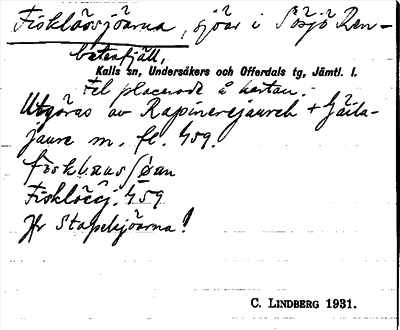 Fisklössjöarna, sjöar i Sösjö Ren-
betesfjäll,
Kalls sn, Undersåkers och Offerdals tg, Jämtl. l.
Fel placerade å kartan.
Utgöras av Rapinerejaureh + Gäila-
jaure m. fl. 459.
fiskløus/øan
Fisklöesj. 459
Jfr Stapelsjöarna!
C. LINDBERG 1931.